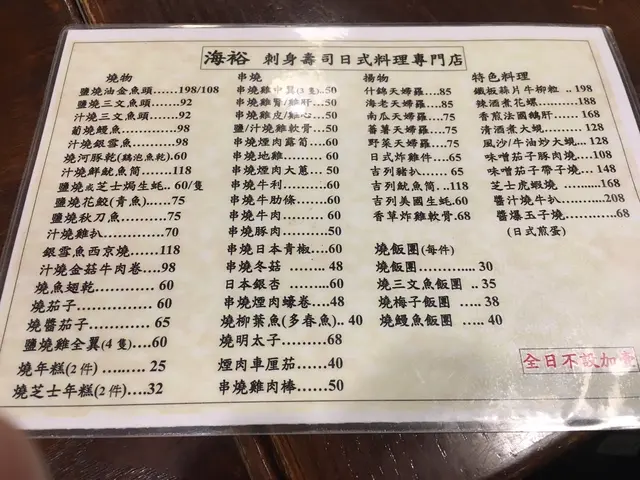 海裕 刺身壽司日式料理專門店
燒物
鹽燒油金魚頭......198/108
鹽燒三文魚頭......92
汁燒三文魚頭......92
葡燒鰻魚..........98
汁燒銀雪魚........98
燒河豚乾(鷄泡魚乾).60
汁燒鮮魷魚筒......118
鹽燒或芝士焗生蚝..60/隻
鹽燒花鮫(青魚)....75
鹽燒秋刀魚........75
汁燒雞扒..........70
銀雪魚西京燒......118
汁燒金菇牛肉卷....98
燒魚翅乾..........60
燒茄子............60
燒醬茄子..........65
鹽燒雞全翼(4隻)....60
燒年糕(2件).......25
燒芝士年糕(2件)....32
串燒
串燒雞中翼(3隻)..50
串燒雞腎/雞肝...50
串燒雞皮/雞心...50
鹽/汁燒雞軟骨...50
串燒煙肉露筍....60
串燒地雞........60
串燒煙肉大蔥....50
串燒牛利........60
串燒牛肋條......60
串燒牛肉........60
串燒豚肉........50
串燒日本青椒....60
串燒冬菇........48
日本銀杏........60
串燒煙肉蠔卷....48
燒柳葉魚(多春魚)..40
燒明太子........68
煙肉車厘茄......40
串燒雞肉棒......50
揚物
什錦天婦羅....85
海老天婦羅....85
南瓜天婦羅....75
蕃薯天婦羅....75
野菜天婦羅....75
日式炸雞件....65
吉列豬扒......65
吉列魷魚筒....118
吉列美國生蚝..60
香草炸雞軟骨.68
燒飯團(每件)
燒飯團..........30
燒三文魚飯團..35
燒梅子飯團....38
燒鰻魚飯團....40
特色料理
鐵板蒜片牛柳粒..198
辣酒煮花螺......188
香煎法國鵝肝....168
清酒煮大蜆......128
風沙/牛油炒大蜆..128
味噌茄子豚肉燒...108
味噌茄子帶子燒...148
芝士虎蝦燒......168
醬汁燒牛扒......208
醬爆玉子燒......68
(日式煎蛋)
全日不設加壹